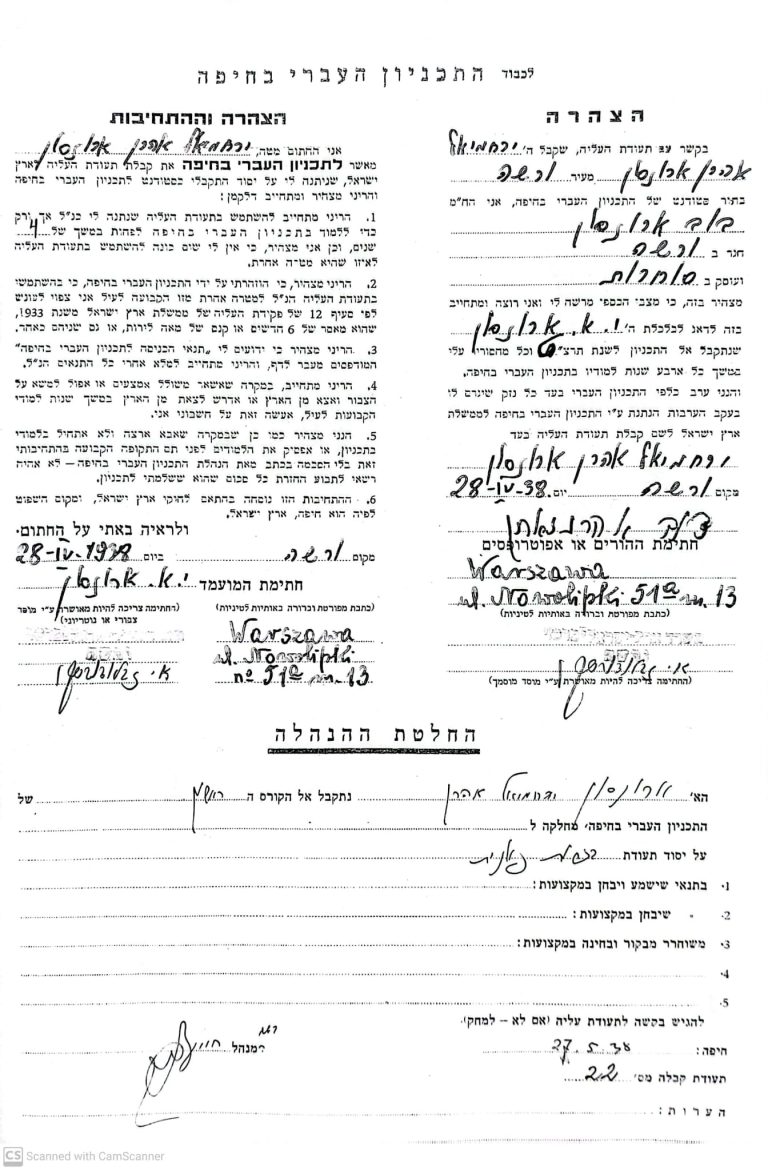 לכבוד התכניון העברי בחיפה
הצהרה
בקשר עם תעודת העליה, שקבל ה' ירחמיאל
אהרן ארונסון מעיר ורשה
בתור סטודנט של התכניון העברי בחיפה, אני הח"מ
ארונסון
הגר ב ורשה
ועוסק ב סוחרות
מצהיר בזה, כי מצבי הכספי מרשה לי ואני רוצה ומתחייב
בזה לדאוג לכלכלת ה' י. א. ארונסון
שנתקבל אל התכניון לשנת תרצ" וכל מחסורו עלי
במשך כל ארבע שנות למודיו בתכניון העברי בחיפה.
והנני ערב כלפי התכניון העברי בעד כל נזק שיגרם לו
בעקב הערבות הנתנת ע"י התכניון העברי בחיפה לממשלת
ארץ ישראל לשם קבלת תעודת העליה בעד
ירחמיאל אהרן ארונסון
מקום ורשה יום 28-IV-38
חתימת ההורים או אפוטרופסים
Warszawa
ul. Nowolipki 51a m. 13
(כתבת מפורטת וברורה באותיות לטיניות)
(החתימה צריכה להיות מאושרת ע"י מוסד מוסמך)
הצהרה וההתחיבות
אני החתום מטה, ירחמיאל אהרן ארונסון
מאשר לתכניון העברי בחיפה את קבלת תעודת העליה לארץ
ישראל, שניתנה לי על יסוד התקבלי כסטודנט לתכניון העברי בחיפה
והריני מצהיר ומתחייב דלקמן:
1. הריני מתחייב להשתמש בתעודת העליה שנתנה לי כנ"ל אך ורק
כדי ללמוד בתכניון העברי בחיפה לפחות במשך של 4
שנים, וכן אני מצהיר, כי אין לי שום כונה להשתמש בתעודת העליה
לאיזו שהיא מטרה אחרת.
2. הריני מצהיר, כי הוזהרתי על ידי התכניון העברי בחיפה, כי בהשתמשי
בתעודת העליה הנ"ל למטרה אחרת מזו הקבועה לעיל אני צפוי לעונש
לפי סעיף 12 של פקודת העליה של ממשלת ארץ ישראל משנת 1933,
שהוא מאסר של 6 חדשים או קנס של מאה לירות, או גם שניהם כאחד.
3. הריני מצהיר כי ידועים לי „תנאי הכניסה לתכניון העברי בחיפה"
המודפסים מעבר לדף, והריני מתחייב למלא אחרי כל התנאים הנ"ל.
4. הריני מתחייב, במקרה שאשאר משולל אמצעים או אפול למשא על
הצבור ואצא מן הארץ או אדרש לצאת מן הארץ במשך שנות למודי
הקבועות לעיל, אעשה זאת על חשבוני אני.
5. הנני מצהיר כמו כן שבמקרה שאבא ארצה ולא אתחיל בלמודי
בתכניון, או אפסיק את הלמודים לפני תם התקופה הקבועה בהתחיבותי
זאת בלי הסכמה בכתב מאת הנהלת התכניון העברי בחיפה – לא אהיה
רשאי לתבוע החזרת כל סכום שהוא ששלמתי לתכניון.
6. ההתחיבות הזו נוסחה בהתאם לחוקי ארץ ישראל, ומקום השפוט
לפיה הוא חיפה, ארץ ישראל.
ולראיה באתי על החתום:
מקום ורשה ביום 28-IV-1938
חתימת המועמד י. א. ארונסון
(כתבת מפורטת וברורה באותיות לטיניות)
(החתימה צריכה להיות מאושרת ע"י מוסד
צבורי או נוטריוני)
Warszawa
ul. Nowolipki
no 51a m. 13
החלטת ההנהלה
הא' ארונסון ירחמיאל אהרן נתקבל אל הקורס ה ראשון של
התכניון העברי בחיפה, מחלקה ל
על יסוד תעודת בגרות
1. בתנאי שישמע ויבחן במקצועות:
2. " שיבחן במקצועות:
3. משוחרר מבקור ובחינה במקצועות:
4.
5.
להגיש בקשה לתעודת עליה (אם לא – למחק).
חיפה: 27.5.38
המנהל
תעודת קבלה מס' 22
הערות:
CS Scanned with CamScanner